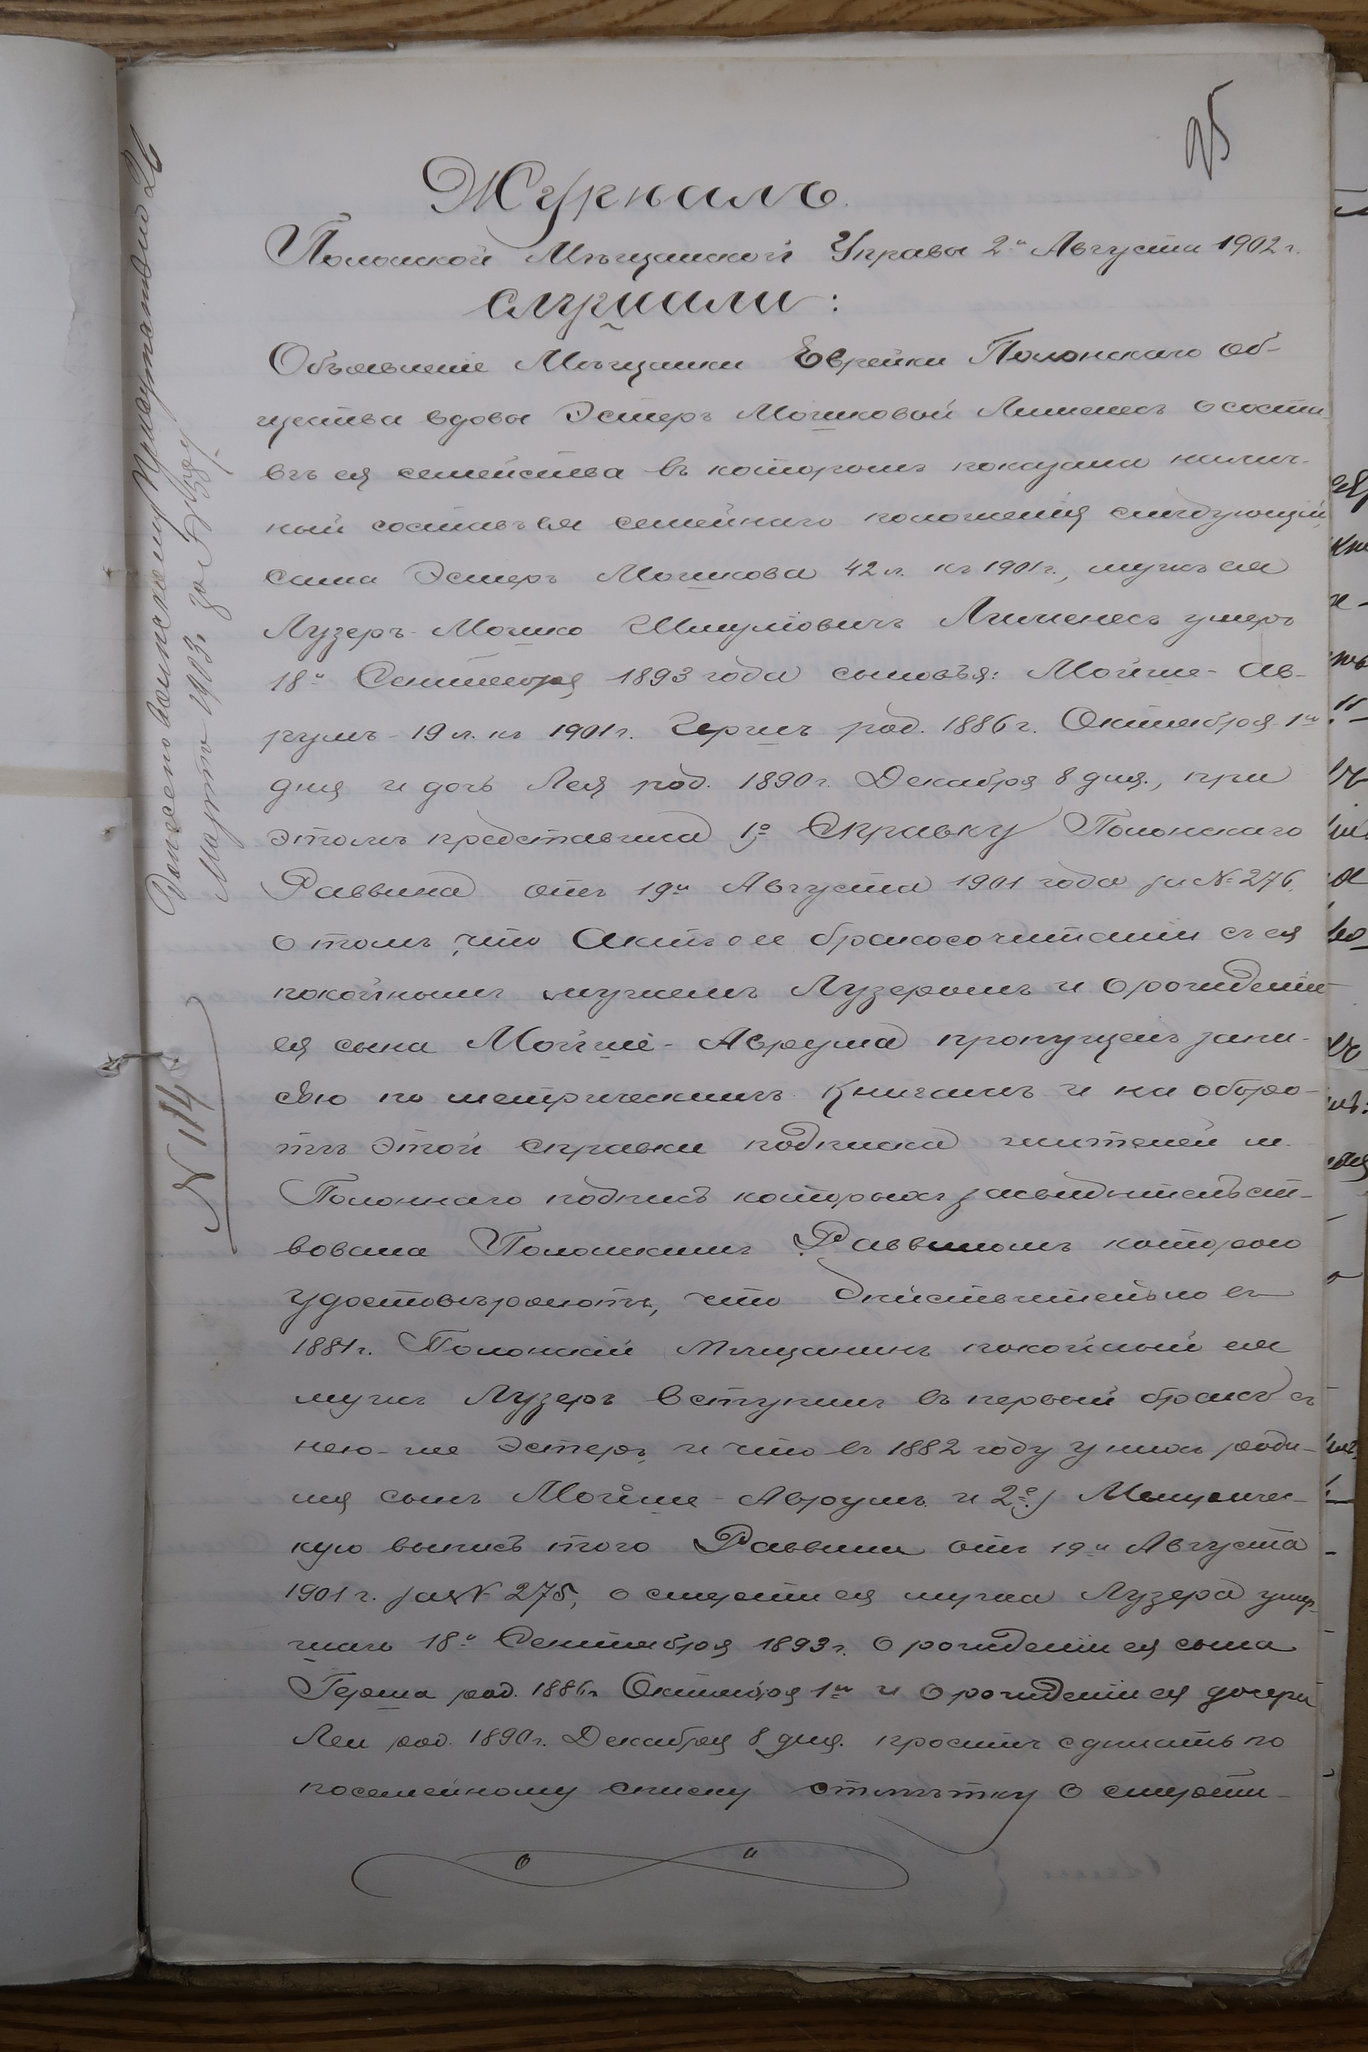 25
Журналъ
Полонской Мѣщанской Управы 2го Августа 1902 г.
слушали:
Объявленіе Мѣщанки Еврейки Полонскаго об-
щества вдовы Эстеръ Мошковой Лименесъ о соста
вѣ ея семейства въ которомъ показано налич-
ный составъ ея семейнаго положенія слѣдующій
сама Эстеръ Мошкова 42 л. къ 1901 г., мужъ ея
Лузеръ-Мошко Шмуліовичъ Лименесъ умеръ
18го Сентября 1893 года сыновья: Мойше-Ав-
румъ-19 л. къ 1901 г. Гершъ род. 1886 г. Октября 1го
дня и дочь Лея род. 1890 г. Декабря 8 дня, при
этомъ представила 1е Справку Полонскаго
Раввина отъ 19го Августа 1901 года за № 276.
о томъ, что Актъ о ея бракосочитаніи съ ея
покойнымъ мужемъ Лузеромъ и о рожденіи
ея сына Мойше-Аврума пропущенъ запи-
сью по метрическимъ книгамъ и на оборо-
тѣ этой справки подписка жителей м.
Полоннаго подпись которыхъ засвидѣтельст-
вована Полонскимъ Раввиномъ которою
удостовѣряютъ, что дѣйствительно въ
1881 г. Полонскій мѣщанинъ покойный ея
мужъ Лузеръ вступилъ въ первый бракъ съ
нею-же Эстеръ, и что въ 1882 году у нихъ роди-
ся сынъ Мойше-Аврумъ и 2е)
кую выпись того Раввина отъ 19го Августа
1901 г. за № 275, о смерти ея мужа Лузера умер-
шаго 18го Сентября 1893 г. о рожденіи ея сына
Герша род. 1886 г. Октября 1го и о рожденіи ея дочери
Леи род. 1890 г. Декабря 8 дня. проситъ сдѣлать по
посемейному списку отмѣтку о смерти
Воинскому Присутствію 26
Марта 1903 г за №
№ 114